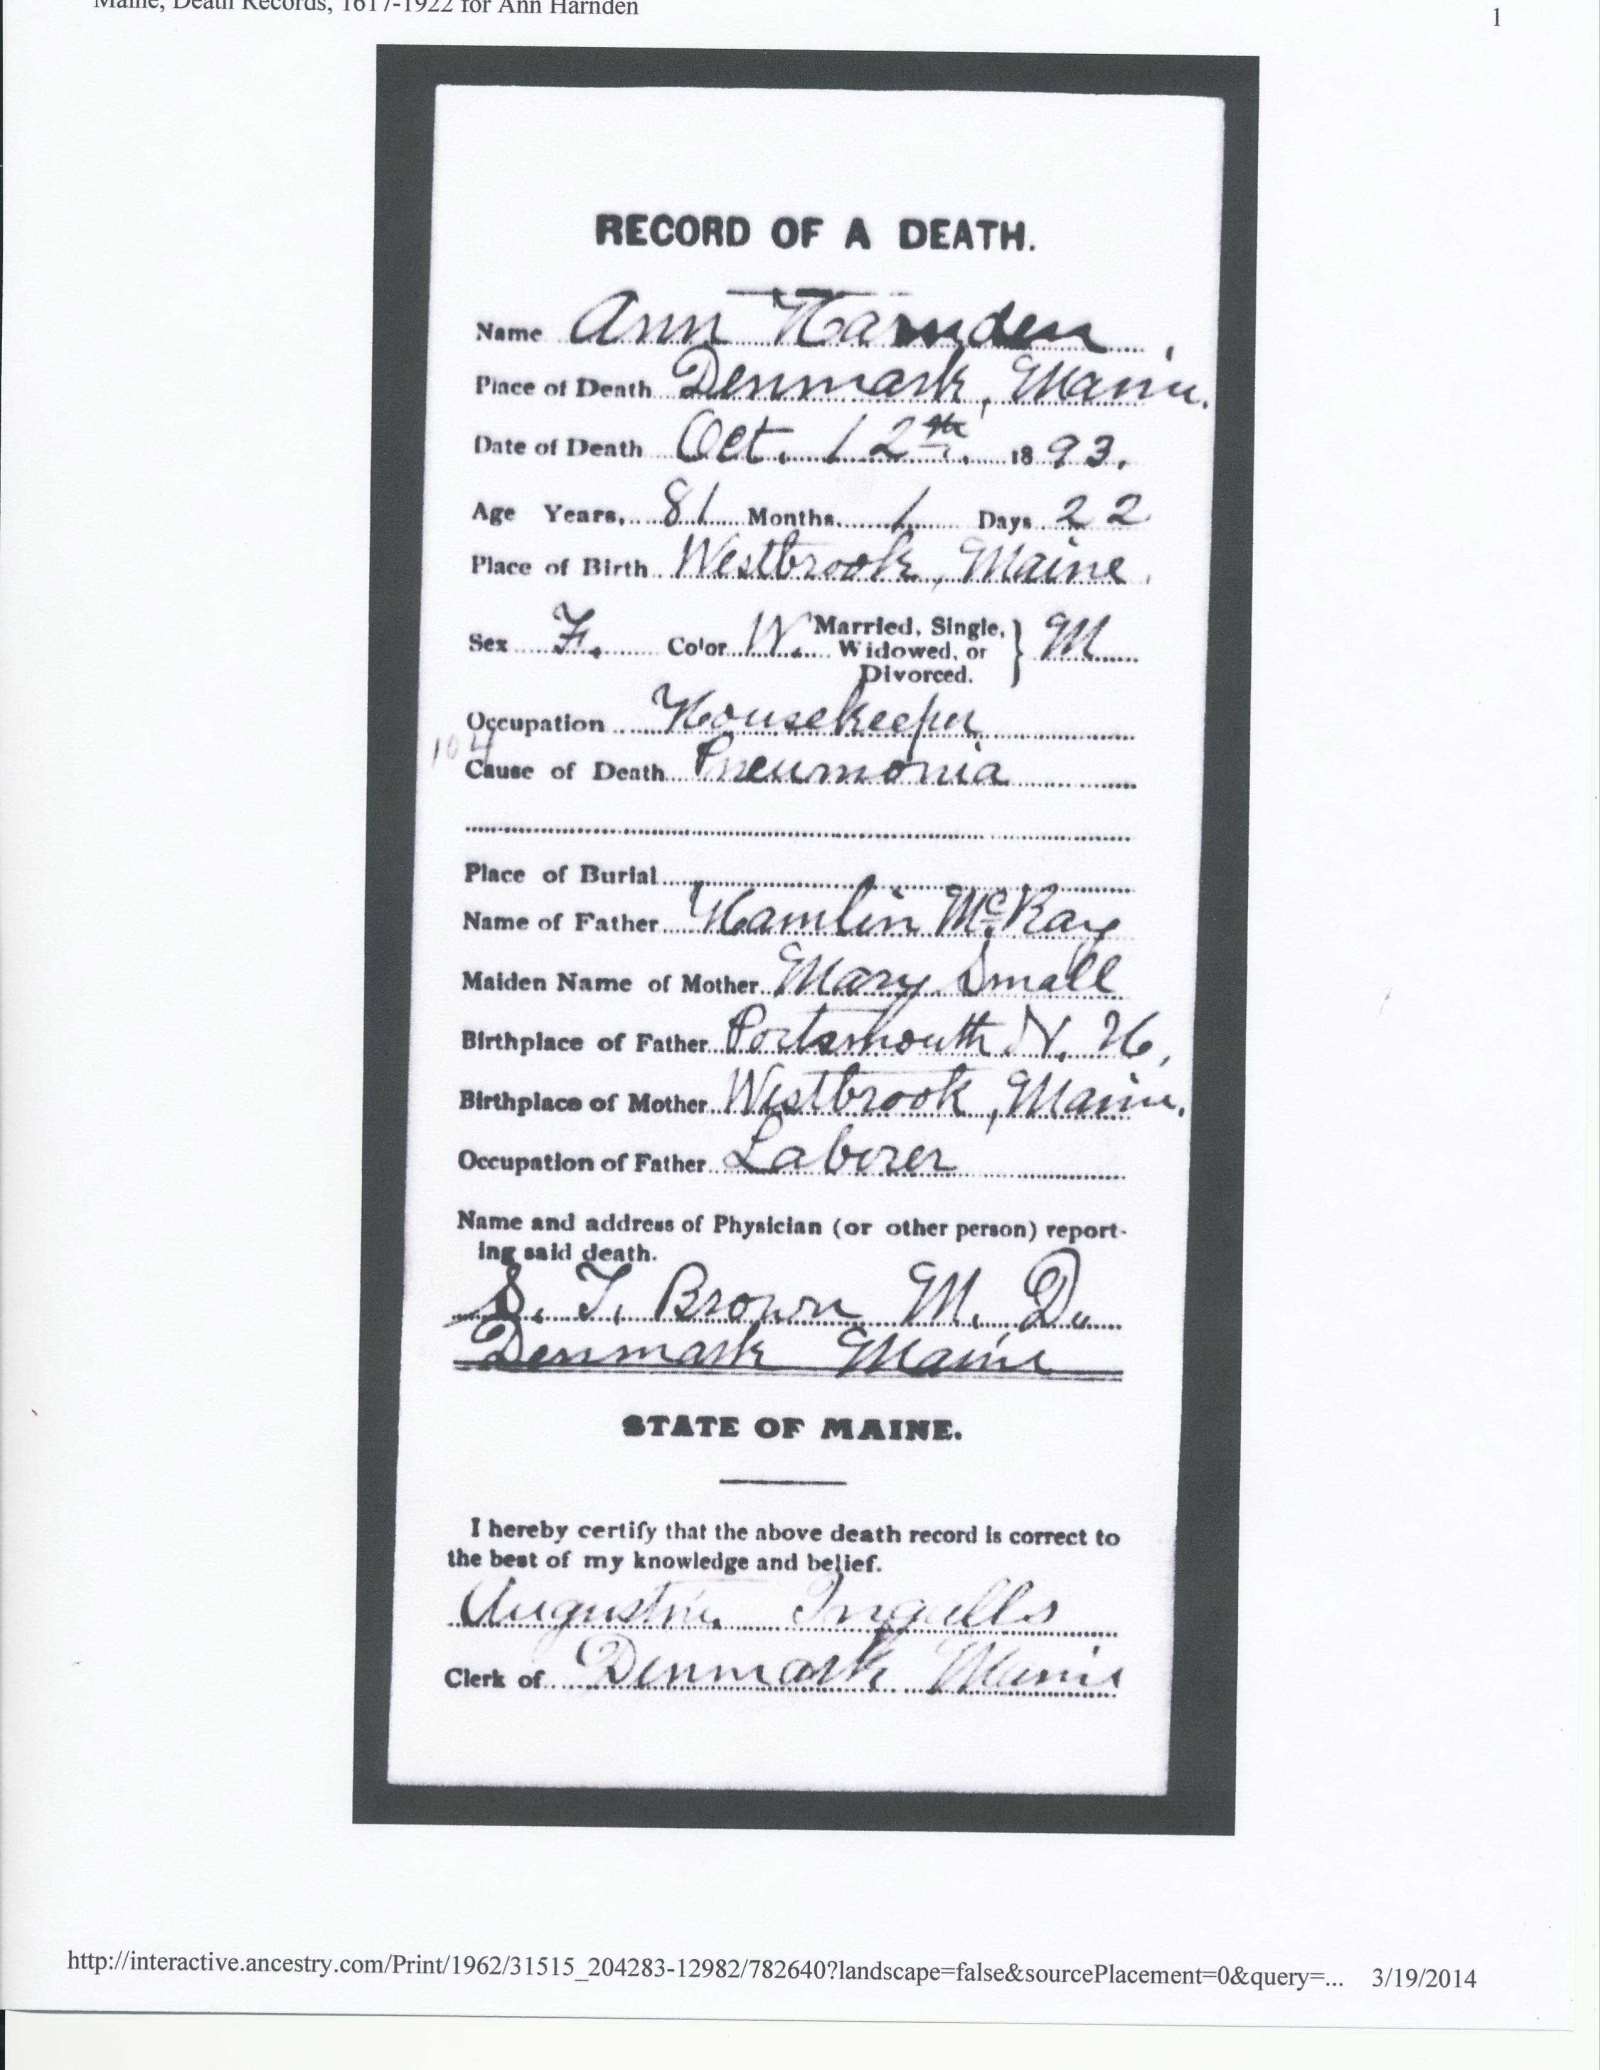 Maine, Death Records, 1617-1922 for Ann Harnden
1
RECORD OF A DEATH.
Name Ann Harnden
Place of Death Denmark, Maine.
Date of Death Oct. 12th. 1893.
Age Years, 81 Months, 1 Days 22
Place of Birth Westbrook, Maine.
Sex F. Color W. Married, Single, Widowed, or Divorced. } M
Occupation Housekeeper
104
Cause of Death Pneumonia
Place of Burial
Name of Father Hamlin McKay
Maiden Name of Mother Mary Small
Birthplace of Father Portsmouth N. H.
Birthplace of Mother Westbrook, Maine.
Occupation of Father Laborer
Name and address of Physician (or other person) report-
ing said death.
S. T. Brown M. D.
Denmark Maine
STATE OF MAINE.
I hereby certify that the above death record is correct to
the best of my knowledge and belief.
Augustine Ingalls
Clerk of Denmark Maine
http://interactive.ancestry.com/Print/1962/31515_204283-12982/782640?landscape=false&sourcePlacement=0&query=... 3/19/2014